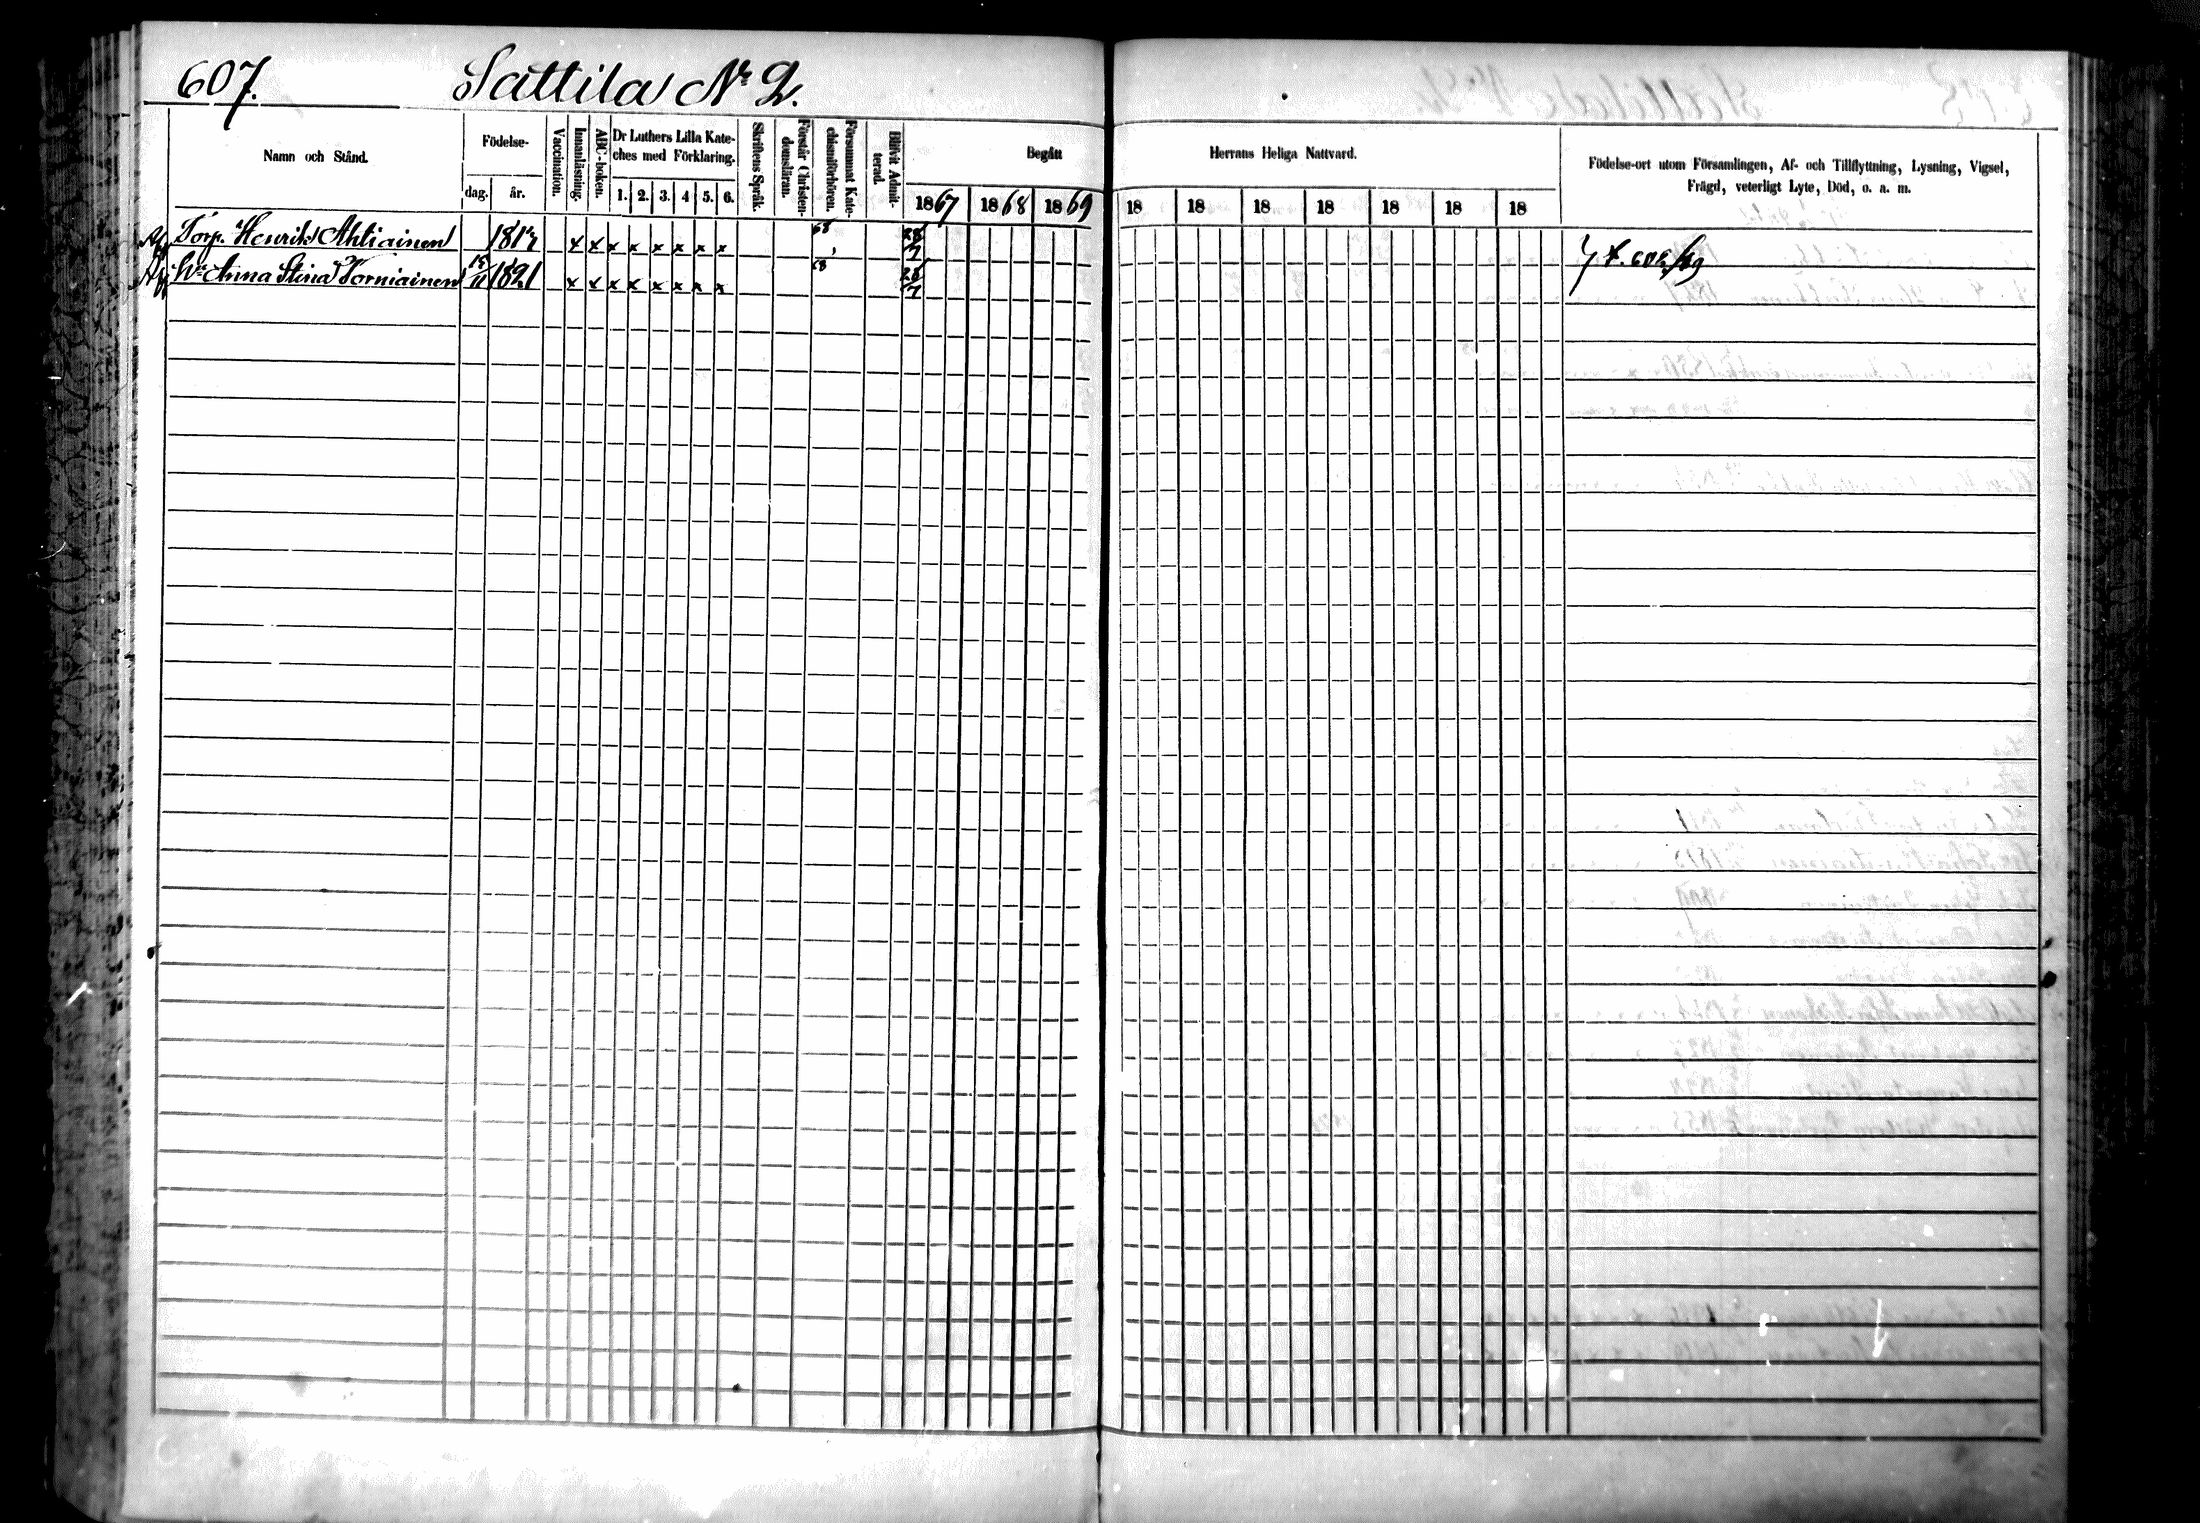 607. Sattila No 2.
Namn och Stånd.
Födelse-
dag. år.
Vaccination.
Innanläsning.
ABC-boken.
Dr Luthers Lilla Kate-
ches med Förklaring.
1. 2. 3. 4 5. 6.
Skriftens Språk.
Förstår Christen-
domsläran.
Försummat Kate-
chismiförhören.
Blifvit Admit-
terad.
Begått
1867 1868 1869
Herrans Heliga Nattvard.
18 18 18 18 18 18 18
Födelse-ort utom Församlingen, Af- och Tillflyttning, Lysning, Vigsel,
Frägd, veterligt Lyte, Död, o. a. m.
Torp. Henrik Ahtiainen 1817 x x x x x x x x 68 28/7
Hu Anna Stina Torniainen 18/11 1821 x x x x x x x x 68 28/7